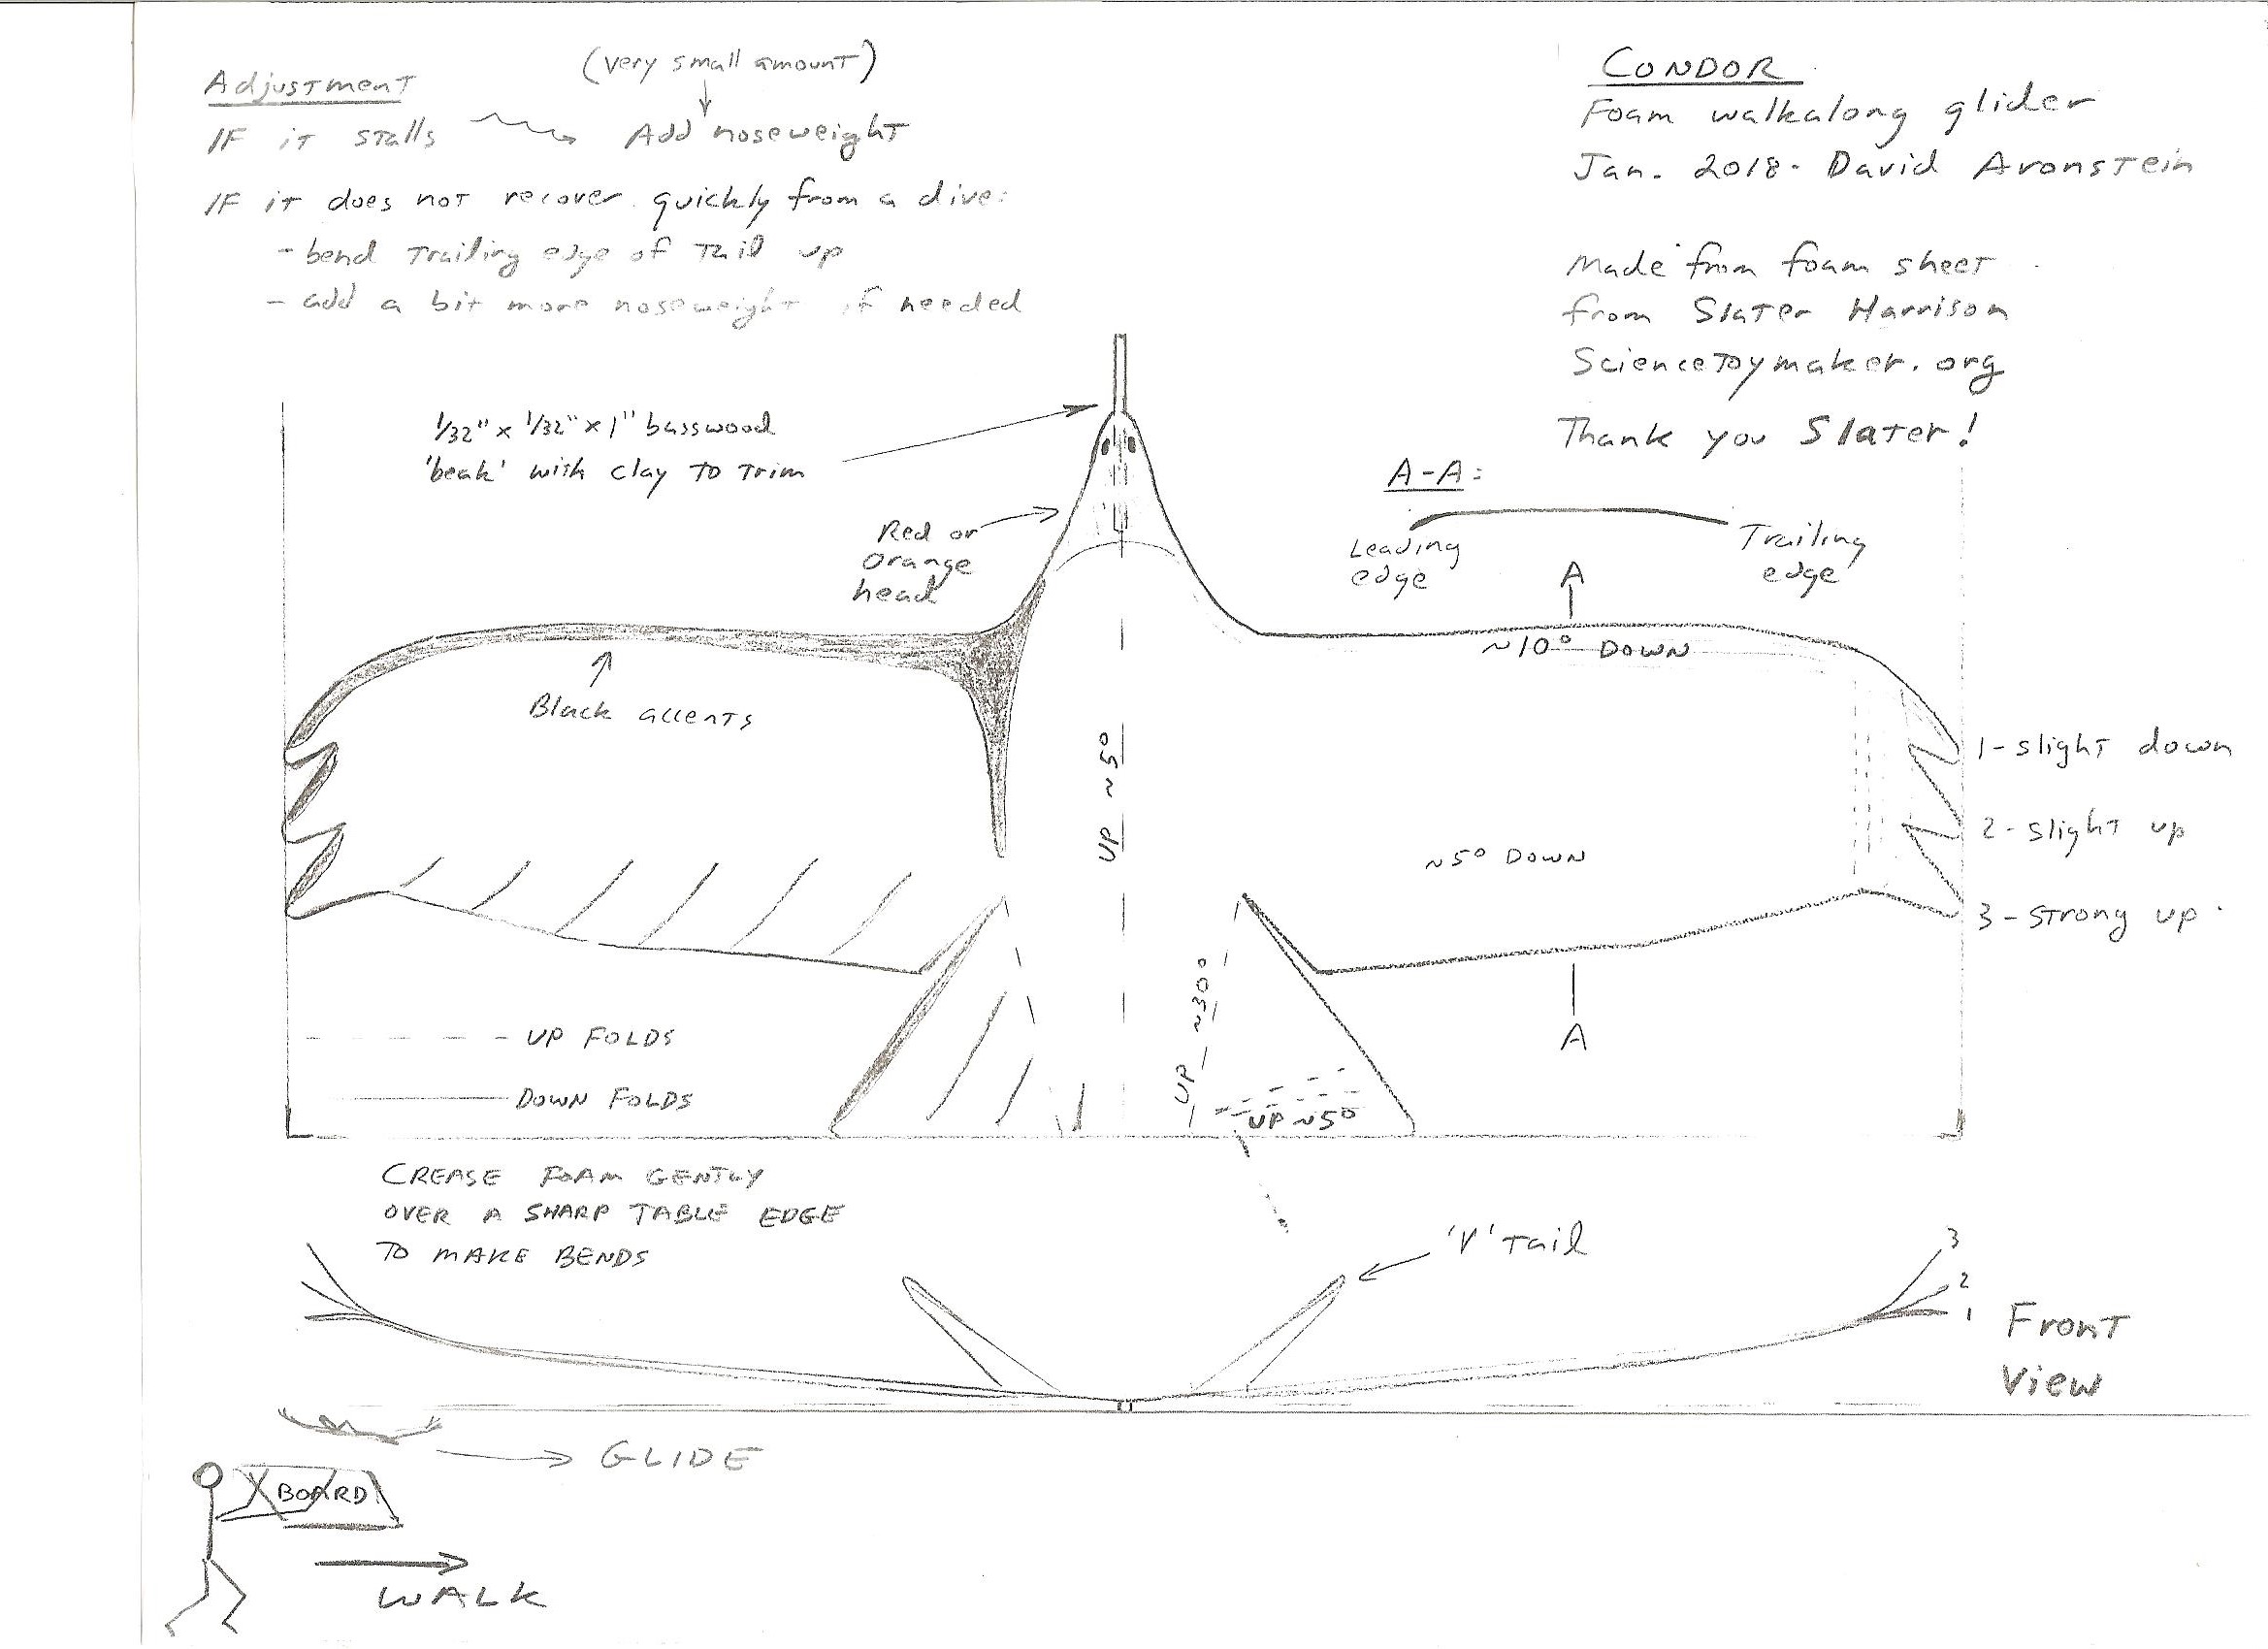 Adjustment
(very small amount)
IF it stalls Add noseweight
IF it does not recover quickly from a dive:
- bend trailing edge of tail up
- add a bit more noseweight if needed
CONDOR
Foam walkalong glider
Jan. 2018 - David Aronstein
Made from foam sheet
from Slater Harrison
ScienceToymaker.org
Thank you Slater!
1/32" x 1/32" x 1" basswood
'beak' with clay to trim
Red or
orange
head
A-A:
Leading
edge
Trailing
edge
A
~10° DOWN
Black accents
UP ~5°
1 - slight down
2 - slight up
3 - strong up
~5° DOWN
UP ~30°
A
UP ~5°
UP FOLDS
DOWN FOLDS
CREASE FOAM GENTLY
OVER A SHARP TABLE EDGE
TO MAKE BENDS
'V' tail
3
2
1
Front
View
GLIDE
BOARD
WALK